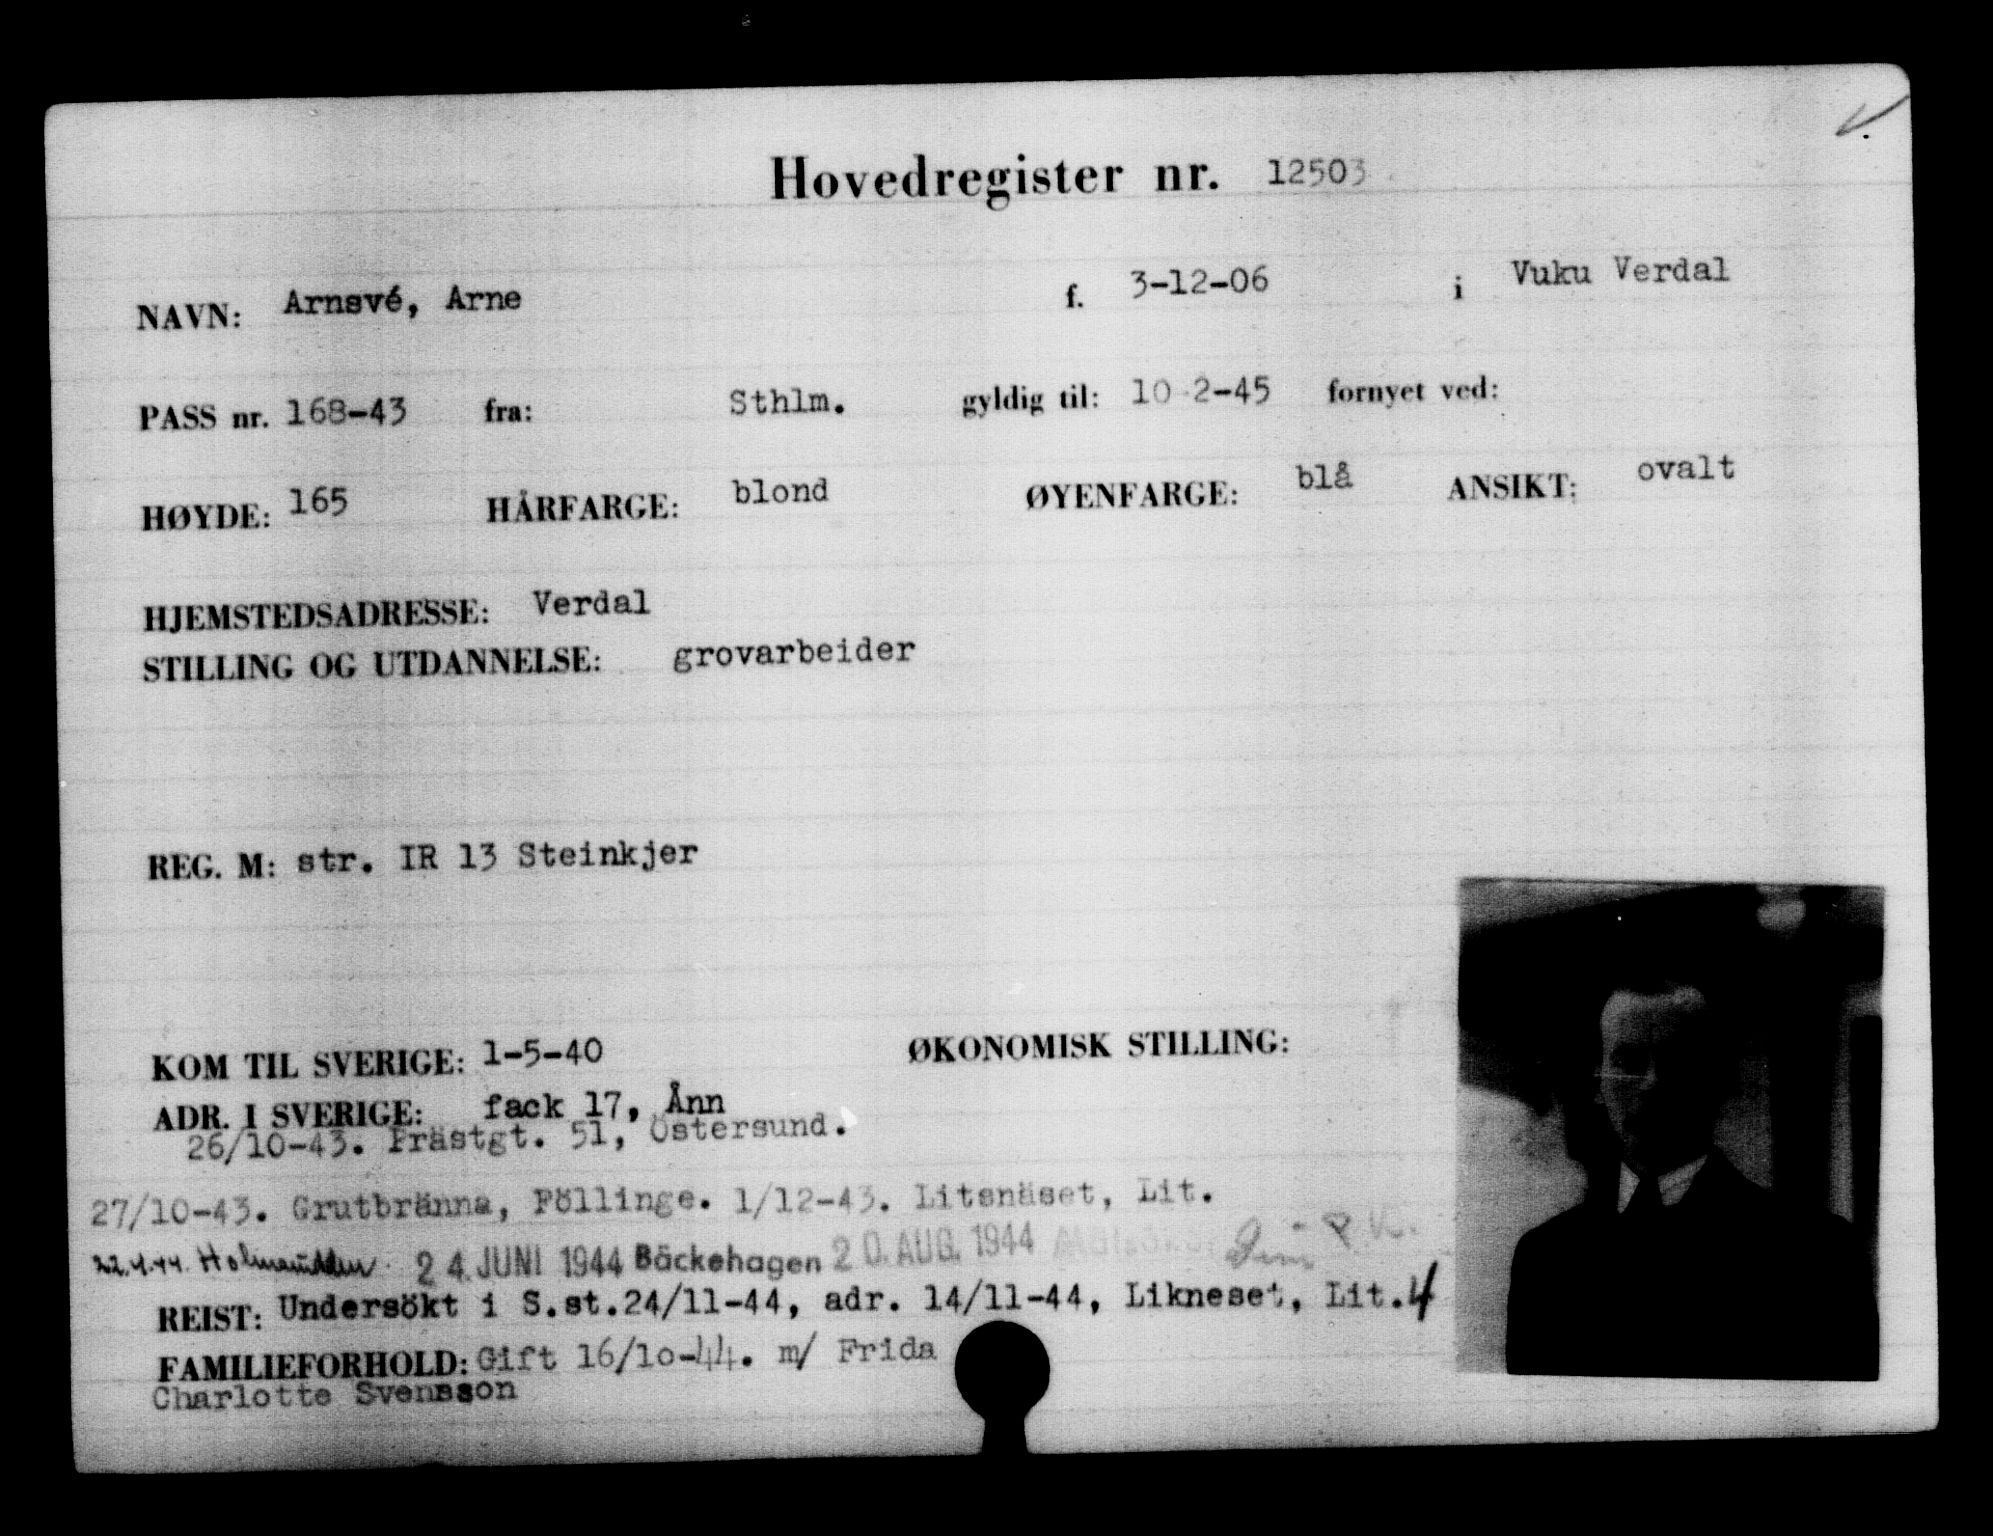 Hovedregister nr. 12503
NAVN: Arnsvé, Arne f. 3-12-06 i Vuku Verdal
PASS nr. 168-43 fra: Sthlm. gyldig til: 10-2-45 fornyet ved:
HØYDE: 165 HÅRFARGE: blond ØYENFARGE: blå ANSIKT: ovalt
HJEMSTEDSADRESSE: Verdal
STILLING OG UTDANNELSE: grovarbeider
REG. M: str. IR 13 Steinkjer
KOM TIL SVERIGE: 1-5-40 ØKONOMISK STILLING:
ADR. I SVERIGE: fack 17, Ånn
26/10-43. Prästgt. 51, Östersund.
27/10-43. Grutbränna, Föllinge. 1/12-43. Litsnäset, Lit.
22.4.44. 24. JUNI 1944 Bäckehagen 20. AUG. 1944
REIST: Undersökt i S.st.24/11-44, adr. 14/11-44, Likneset, Lit.4
FAMILIEFORHOLD: Gift 16/10-44. m/ Frida
Charlotte Svensson